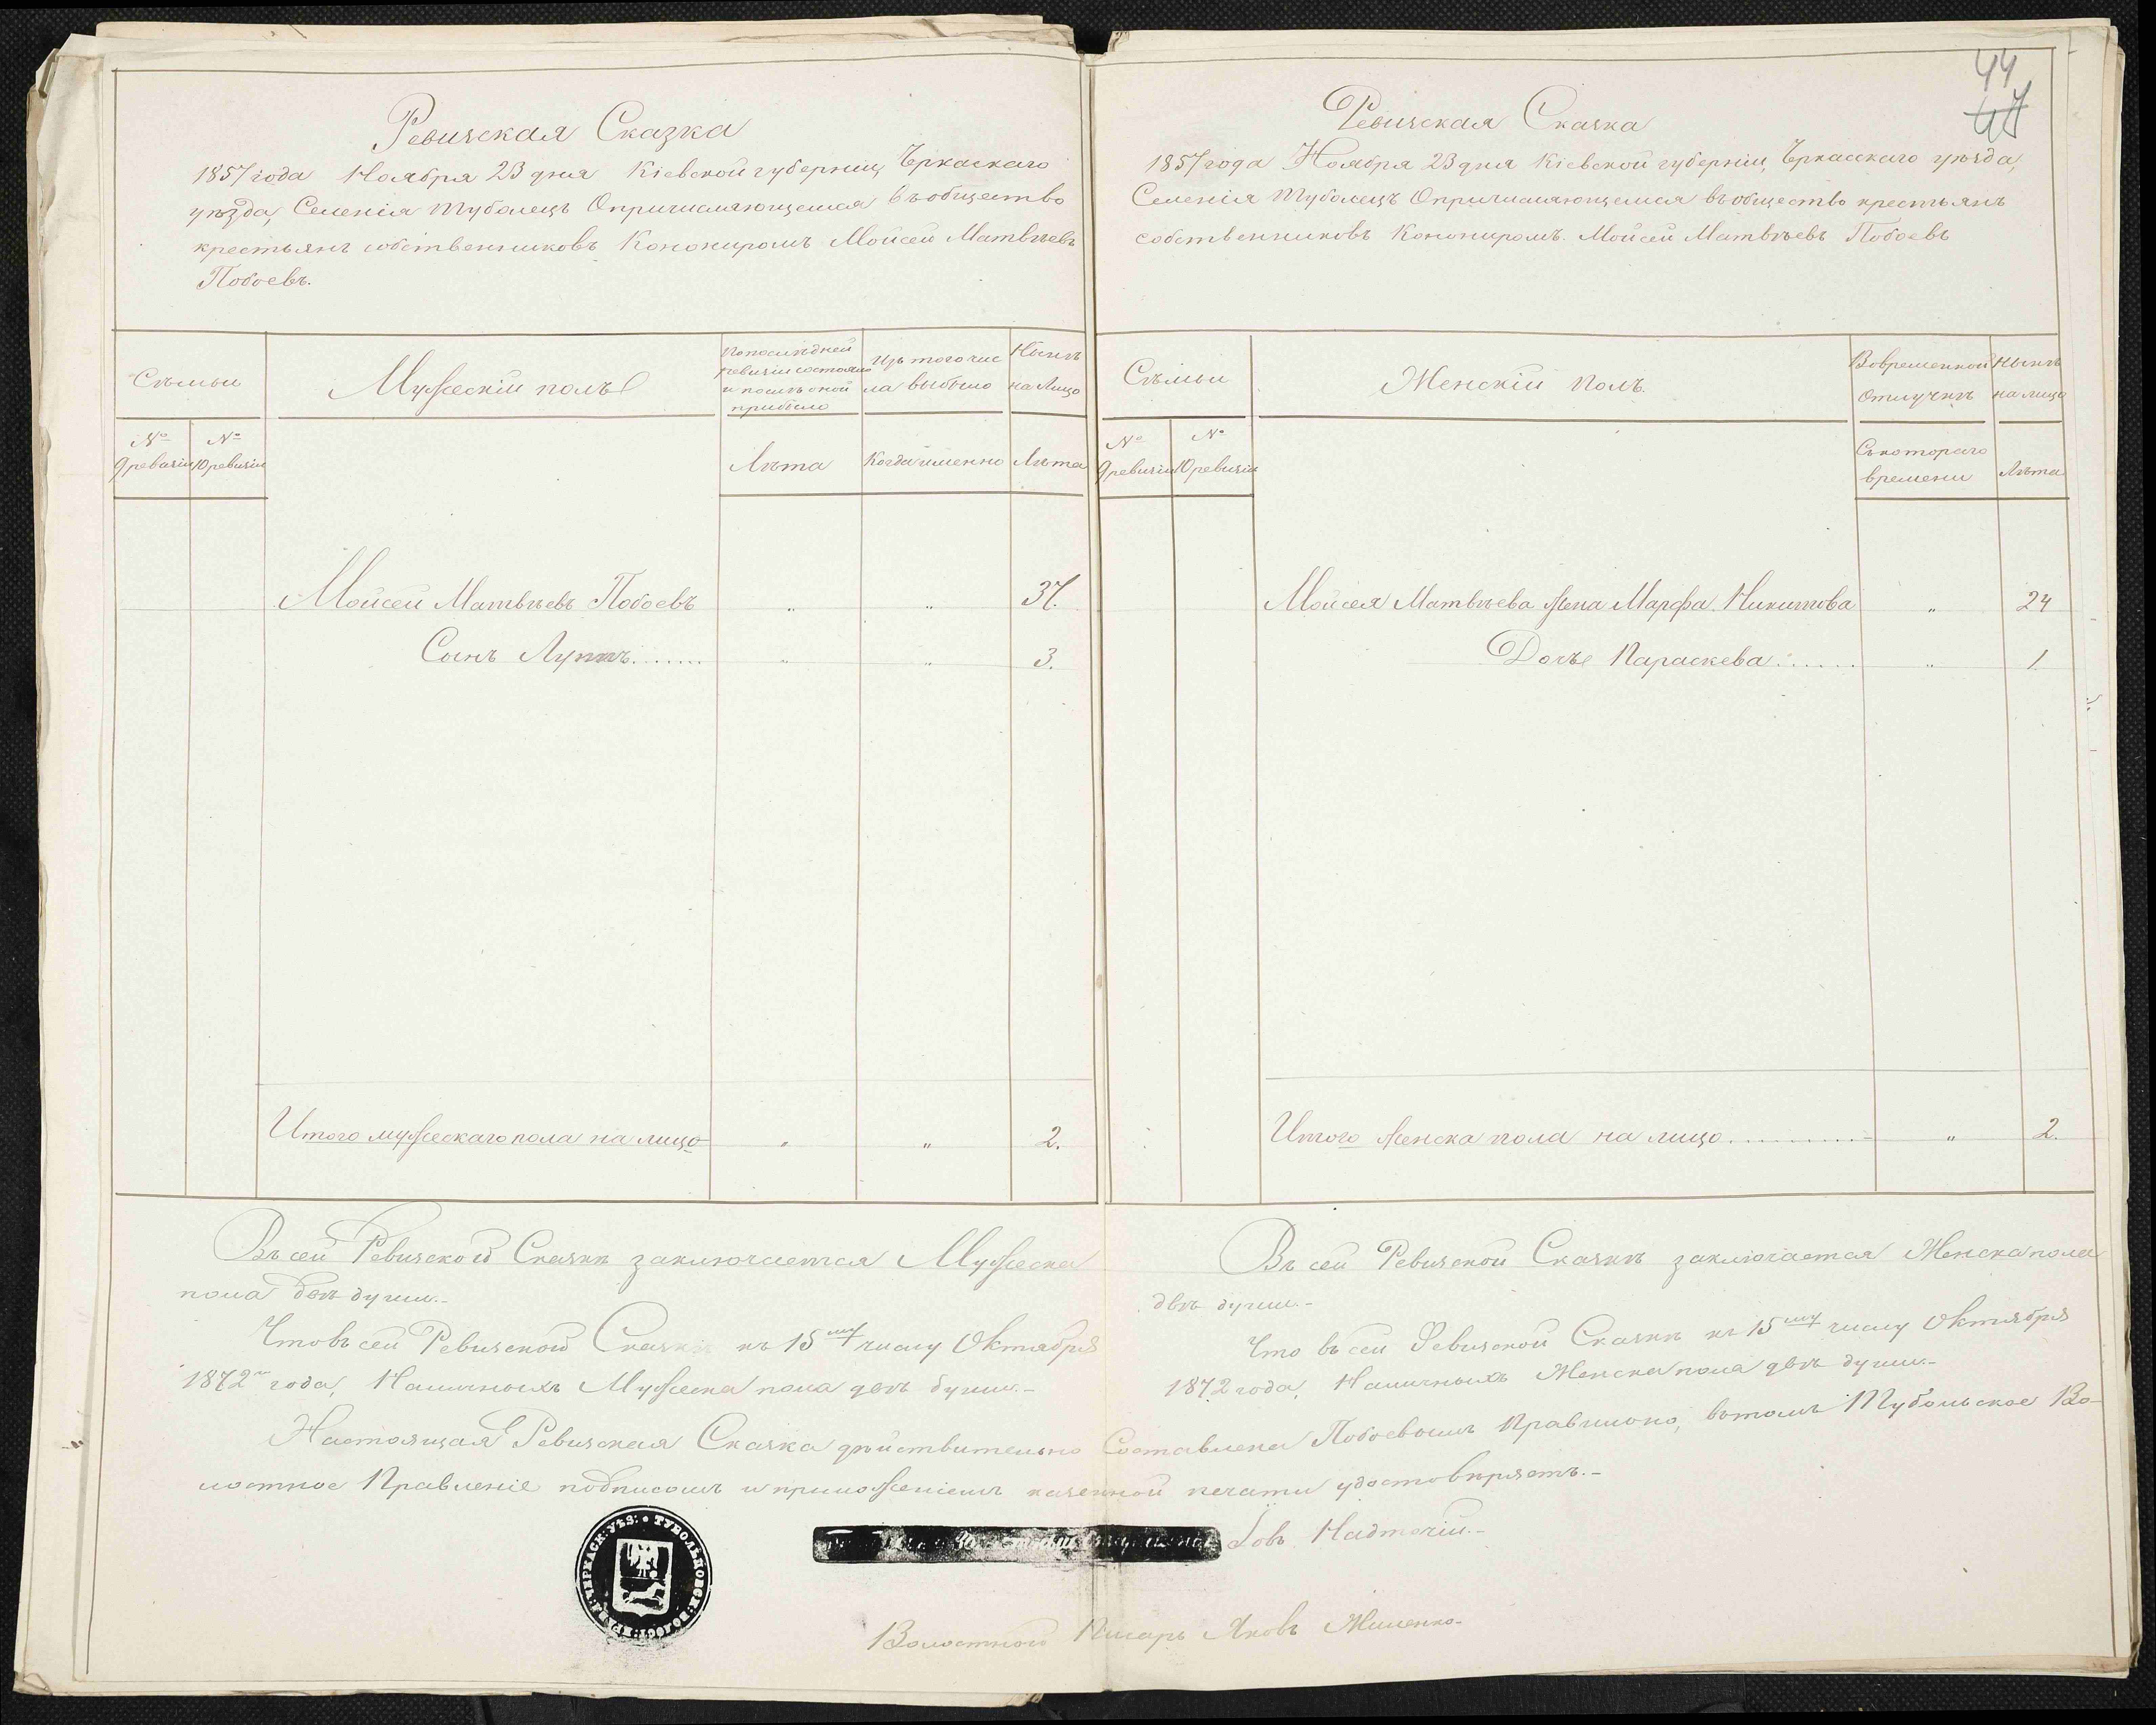 Ревизская Сказка
1857 года Ноября 23 дня Кіевской губерніи, Чркаскаго
уѣзда, Селенія Туболецъ Опричисляющемся въ общество
крестьянъ собственниковъ Конониромъ Мойсей Матвѣевъ
Побоевъ.
Сѣмьи
Мужескій полъ
По послѣдней
ревизіи состояло
и послѣ оной
прибыло
Изъ того чис
ла выбыло
Нынѣ
на Лицо
№
9 ревизіи
№
10 ревизіи
Лѣта
Когда именно
Лѣта
Мойсей Матвѣевъ Побоевъ " " 37.
Сынъ Луппъ....... " " 3.
Итого мужескаго пола на лицо " " 2.
Въ сей Ревизской Сказкѣ заключается Мужеска
пола двѣ души.-
Что въ сей Ревизской Сказкѣ къ 15му числу Октября
1872 года, Наличныхъ Мужеска пола двѣ души.-
44
47
Ревизская Сказка
1857 года Ноября 23 дня Кіевской губерніи, Чркасскаго уѣзда,
Селенія Туболецъ Опричисляющемся въ общество крестьянъ
собственниковъ Конониромъ. Мойсей Матвѣевъ Побоевъ
Сѣмьи
Женскій полъ.
Во временной
отлучкѣ
Нынѣ
на лицо
№
9 ревизіи
№
10 ревизіи
Съ котораго
времени
Лѣта
Мойсея Матвѣева Жена Марфа Никитова " 24
Дочь Параскева....... " 1
Итого женска пола на лицо............ " 2.
Въ сей Ревизской Сказкѣ заключается Женска пола
двѣ души.-
Что въ сей Ревизской Сказкѣ къ 15му числу Октября
1872 года, Наличныхъ Женска пола двѣ души.-
Настоящая Ревизская Сказка дѣйствительно Составлена Побоевымъ Правильно, въ томъ Тубольское Во-
лостное Правленіе подписомъ и приложеніемъ казенной печати удостовѣряетъ.-
Іовъ Надточій.-
Волостной Писарь Яковъ Жиленко-